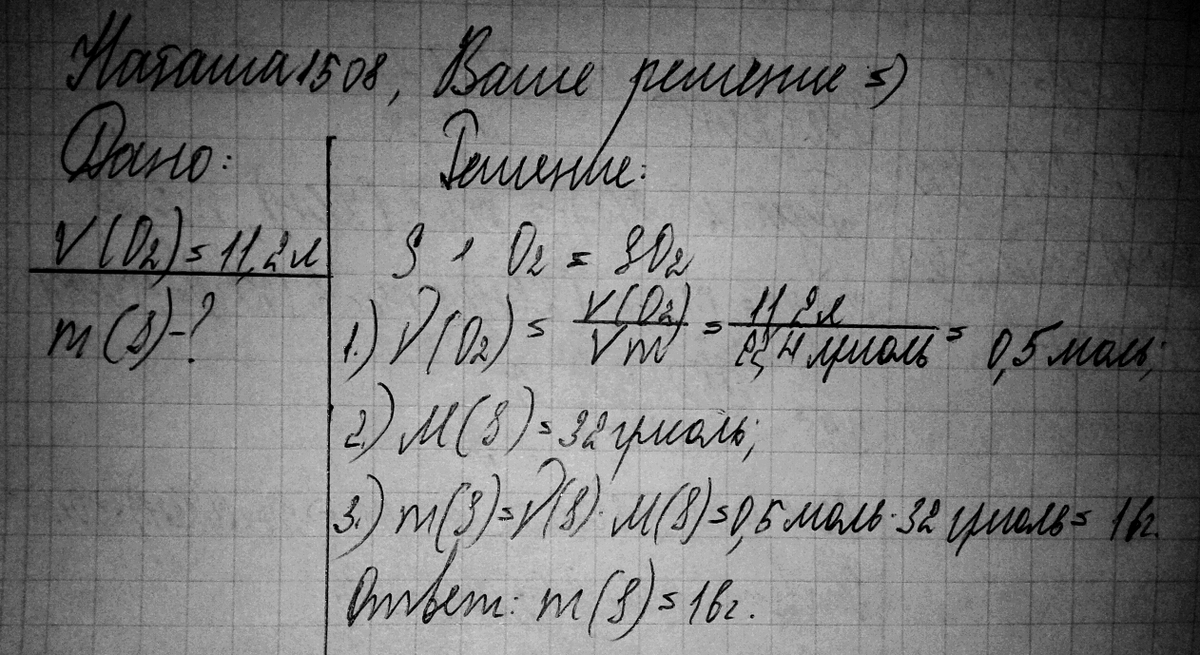 Наташа1508, Ваше решение =)
Дано:
V(O₂) = 11,2 л
m(S) - ?
Решение:
S + O₂ = SO₂
1.) ν(O₂) = V(O₂)/Vm = 11,2 л/22,4 л/моль = 0,5 моль;
2.) M(S) = 32 г/моль;
3.) m(S) = ν(S) · M(S) = 0,5 моль · 32 г/моль = 16 г.
Ответ: m(S) = 16 г.